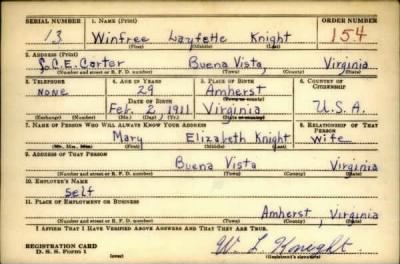 SERIAL NUMBER 1. NAME (Print) ORDER NUMBER
13 Winfree Layfette Knight 154
(First) (Middle) (Last)
2. ADDRESS (Print)
C.E. Carter Buena Vista, Virginia
(Number and street or R. F. D. number) (Town) (County) (State)
3. TELEPHONE 4. AGE IN YEARS 5. PLACE OF BIRTH 6. COUNTRY OF CITIZENSHIP
None 29 Amherst
DATE OF BIRTH (Town or county)
Feb. 2, 1911 Virginia U.S.A.
(Exchange) (Number) (Mo.) (Day) (Yr.) (State or country)
7. NAME OF PERSON WHO WILL ALWAYS KNOW YOUR ADDRESS 8. RELATIONSHIP OF THAT PERSON
Mary Elizabeth Knight wife
(Mr., Mrs., Miss) (First) (Middle) (Last)
9. ADDRESS OF THAT PERSON
Buena Vista Virginia
(Number and street or R. F. D. number) (Town) (County) (State)
10. EMPLOYER'S NAME
Self
11. PLACE OF EMPLOYMENT OR BUSINESS
Amherst, Virginia
(Number and street or R. F. D. number) (Town) (County) (State)
I AFFIRM THAT I HAVE VERIFIED ABOVE ANSWERS AND THAT THEY ARE TRUE.
REGISTRATION CARD
D. S. S. Form 1 W. L. Knight
(Registrant's signature)